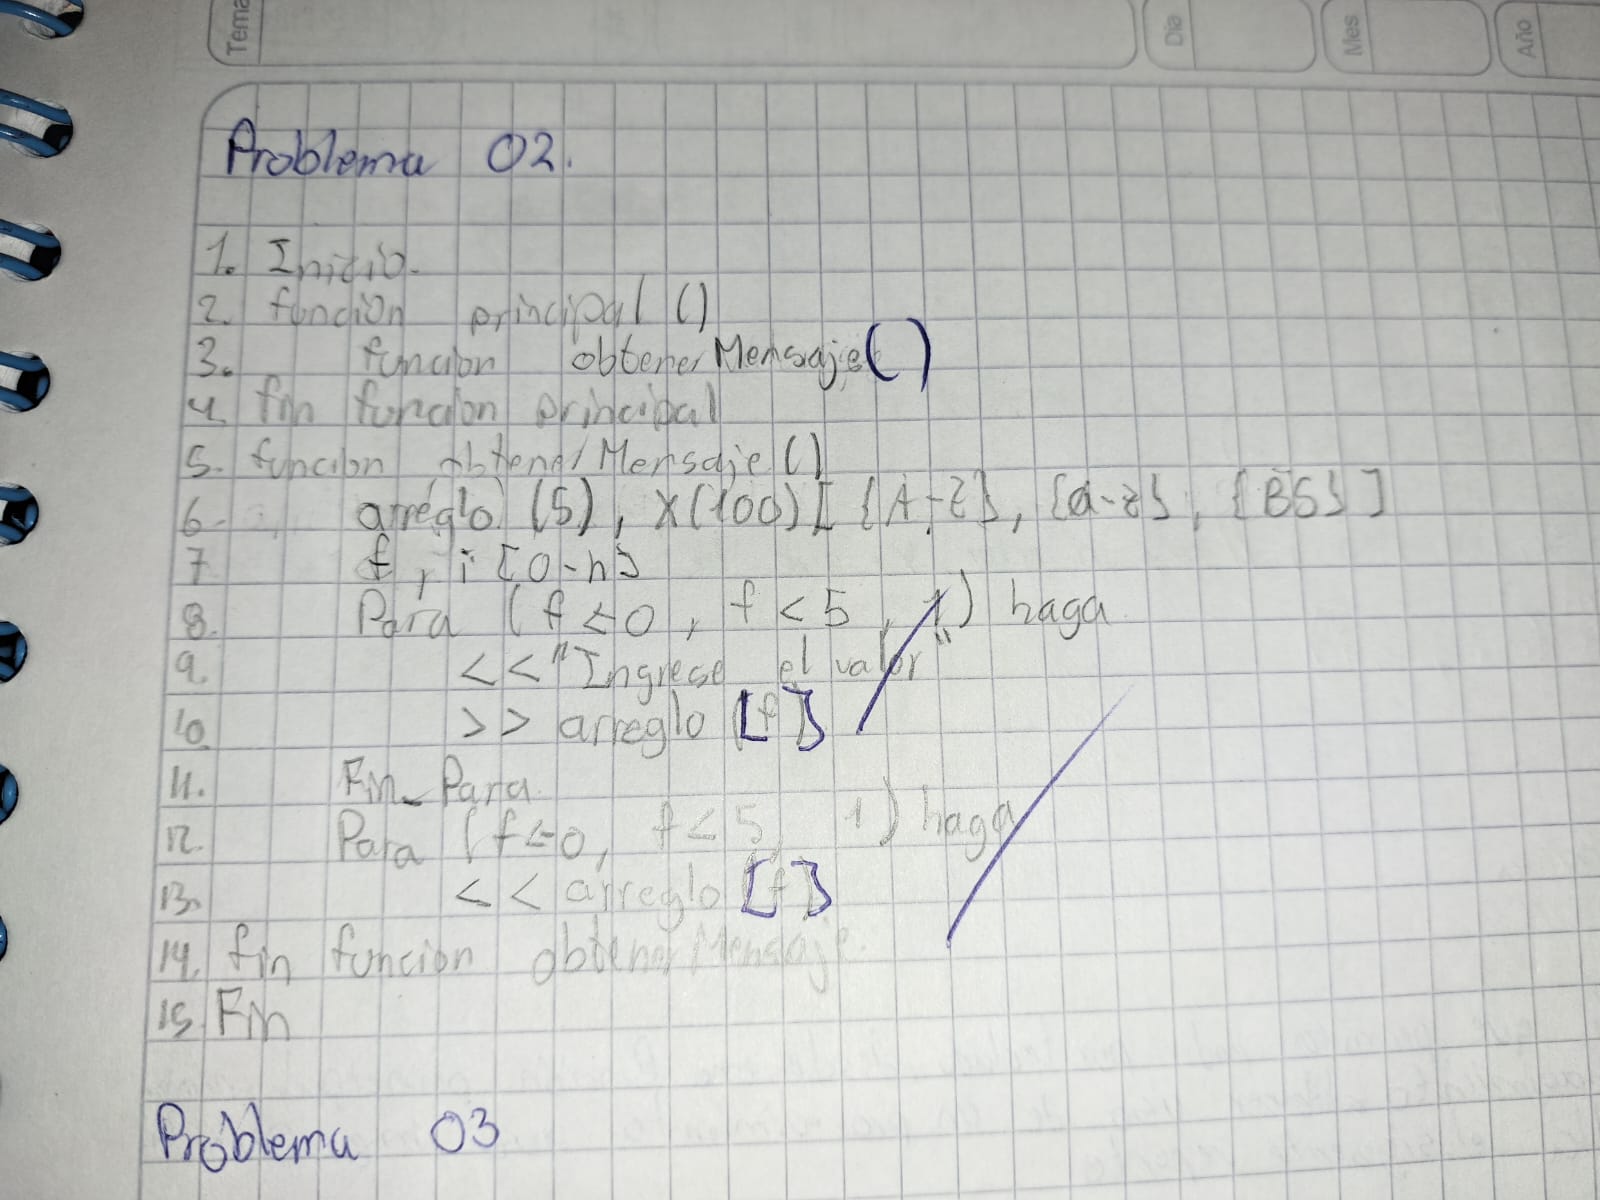 Tema
Día
Mes
Año
Problema 02.
1. Inicio.
2. función principal ()
3. funcion obtenerMensaje()
4. fin funcion principal
5. funcion obtenerMensaje()
6. arreglo (5), X(100)[{A-Z}, {a-z}, {BS}]
7 f, i [0-n]
8. Para (f<-0, f<5, 1) haga
9. <<"Ingrese el valor"
10. >> arreglo [f]
11. Fin_Para
12. Para (f<-0, f<5, 1) haga
13. << arreglo [f]
14. fin funcion obtenerMensaje.
15. Fin
Problema 03